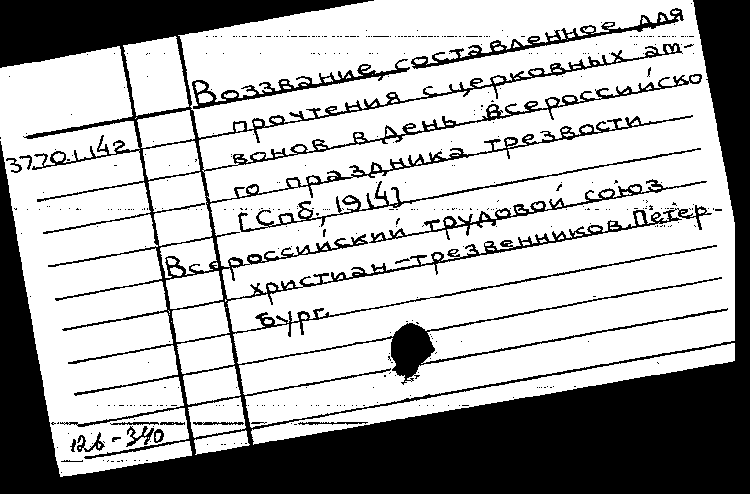 Воззвание, составленное для
прочтения с церковных ам-
вонов в день Всероссийско
го праздника трезвости.
37.70.1.142
[Спб., 1914]
Всероссийский трудовой союз
христиан-трезвенников. Петер-
бург.
126-340